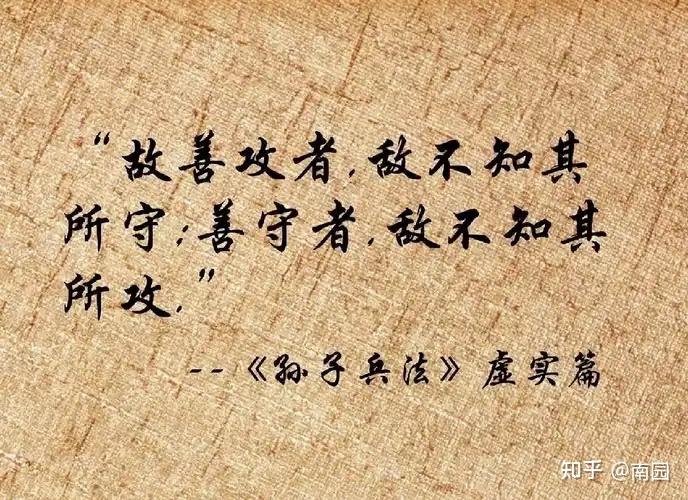 “故善攻者,敌不知其
所守;善守者,敌不知其
所攻.”
--《孙子兵法》虚实篇
知乎 @南园